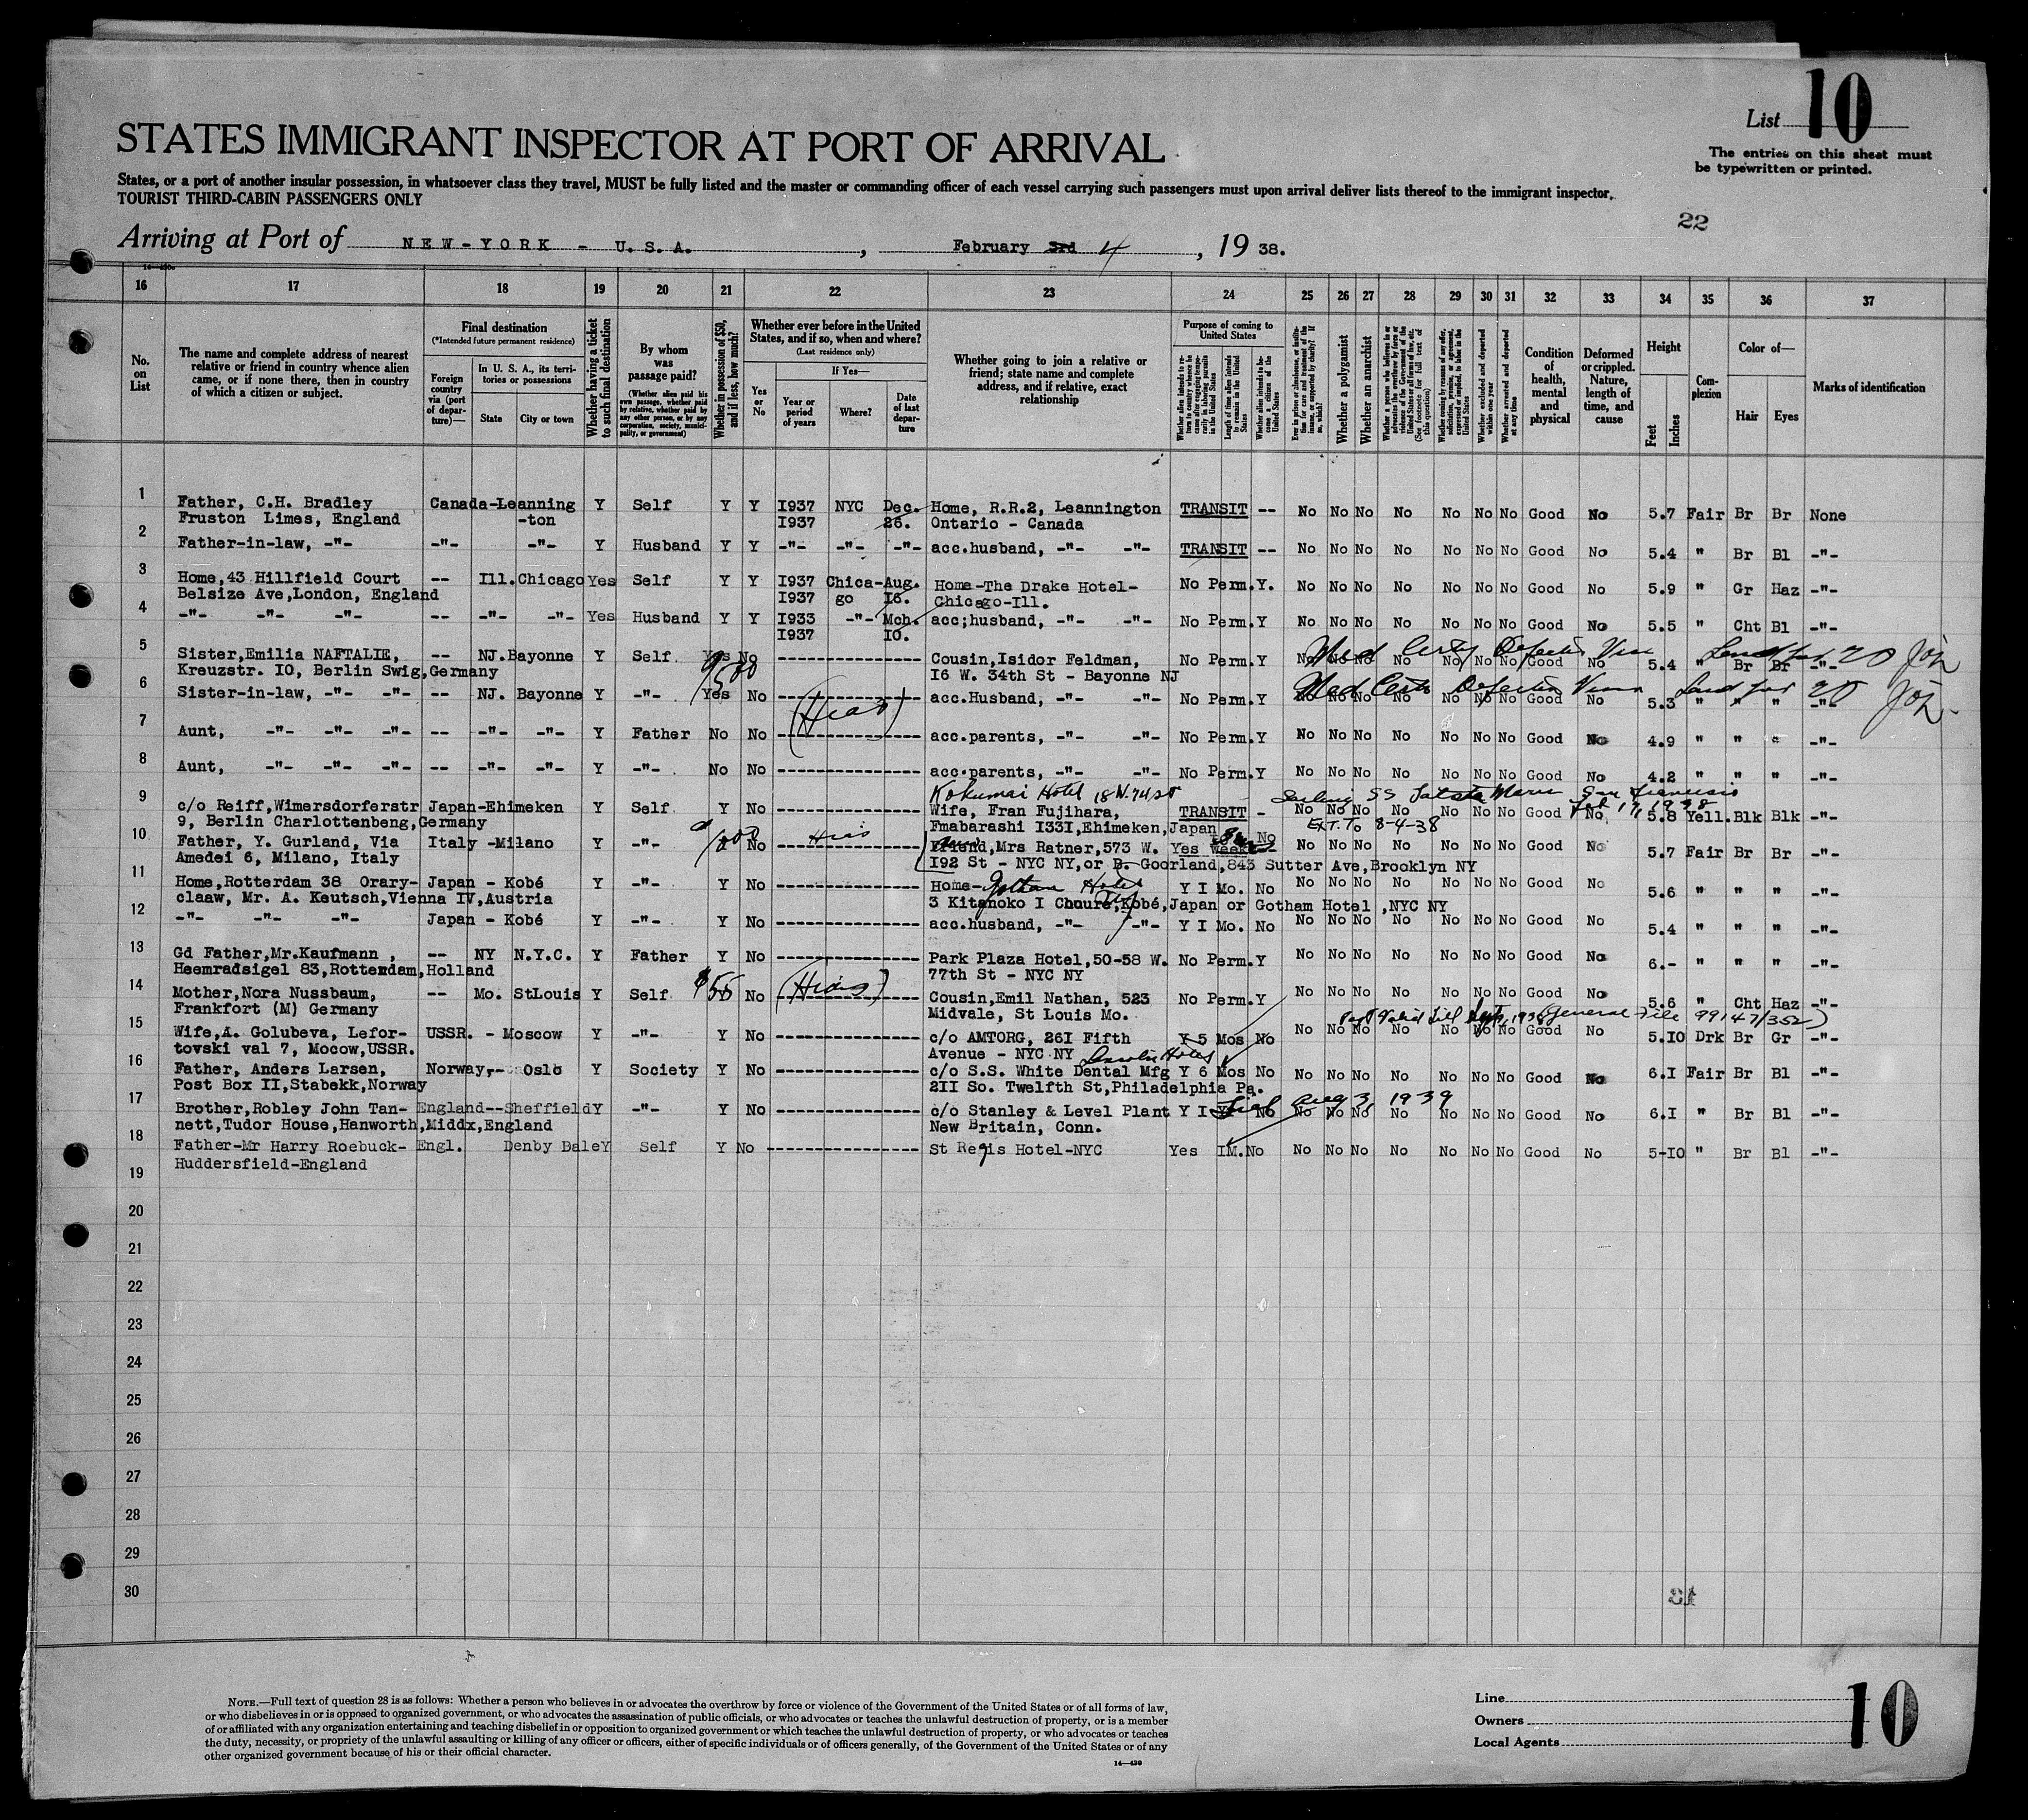 List 10
STATES IMMIGRANT INSPECTOR AT PORT OF ARRIVAL
The entries on this sheet must
be typewritten or printed.
States, or a port of another insular possession, in whatsoever class they travel, MUST be fully listed and the master or commanding officer of each vessel carrying such passengers must upon arrival deliver lists thereof to the immigrant inspector.
TOURIST THIRD-CABIN PASSENGERS ONLY
22
Arriving at Port of NEW-YORK - U.S.A. , February 3rd 4 , 19 38.
16 17 18 19 20 21 22 23 24 25 26 27 28 29 30 31 32 33 34 35 36 37
No. on List
The name and complete address of nearest relative or friend in country whence alien came, or if none there, then in country of which a citizen or subject.
Final destination
(*Intended future permanent residence)
Foreign country via (port of departure)—
In U. S. A., its territories or possessions
State
City or town
Whether having a ticket to such final destination
By whom was passage paid?
(Whether alien paid his own passage, whether paid by relative, whether paid by any other person, or by any corporation, society, municipality, or government)
Whether in possession of $50, and if less, how much?
Whether ever before in the United States, and if so, when and where?
(Last residence only)
Yes or No
If Yes—
Year or period of years
Where?
Date of last departure
Whether going to join a relative or friend; state name and complete address, and if relative, exact relationship
Purpose of coming to United States
Length of time alien intends to remain in the United States
Whether alien intends to become a citizen of the United States
Whether a polygamist
Whether an anarchist
Whether excluded and deported within one year
Whether arrested and deported at any time
Condition of health, mental and physical
Deformed or crippled. Nature, length of time, and cause
Height
Feet
Inches
Complexion
Color of—
Hair
Eyes
Marks of identification
1 Father, C.H. Bradley Canada-Leanning Y Self Y Y I937 NYC Dec. Home, R.R.2, Leannington TRANSIT -- No No No No No No No Good No 5.7 Fair Br Br None
Fruston Limes, England -ton I937 26. Ontario - Canada
2 Father-in-law, -"- -"- -"- Y Husband Y Y -"- -"- -"- acc.husband, -"- -"- TRANSIT -- No No No No No No No Good No 5.4 " Br Bl -"-
3 Home,43 Hillfield Court -- Ill.Chicago Yes Self Y Y I937 Chica-Aug. Home-The Drake Hotel- No Perm.Y. No No No No No No No Good No 5.9 " Gr Haz -"-
Belsize Ave,London, England I937 go I6. Chicago-Ill.
4 -"- -"- -"- -- -"- -"- Yes Husband Y Y I933 -"- Mch. acc;husband, -"- -"- No Perm.Y No No No No No No No Good No 5.5 " Cht Bl -"-
I937 I0.
5 Sister,Emilia NAFTALIE, -- NJ.Bayonne Y Self Yes No Cousin,Isidor Feldman, No Perm.Y No No No No No No No Good No 5.4 " Br Br -"-
Kreuzstr. I0, Berlin Swig,Germany I6 W. 34th St - Bayonne NJ
6 Sister-in-law, -"- -"- -- NJ. Bayonne Y -"- Yes No acc.Husband, -"- -"- No Perm.Y No No No No No No No Good No 5.3 " " " -"-
(Hias)
7 Aunt, -"- -"- -"- -- -"- -"- Y Father No No acc.parents, -"- -"- No Perm.Y No No No No No No No Good No 4.9 " " " -"-
8 Aunt, -"- -"- -"- -- -"- -"- Y -"- No No acc.parents, -"- -"- No Perm.Y No No No No No No No Good No 4.2 " " " -"-
Kokumai Hotel 18 W. 74 St Sailing SS Tatsuta Maru San Francisco
Feb 17, 1938
9 c/o Reiff,Wimersdorferstr Japan-Ehimeken Y Self Y No Wife, Fran Fujihara, TRANSIT - No No No No No No No Good No 5.8 Yell.Blk Blk -"-
9, Berlin Charlottenbeng,Germany Fmabarashi I33I,Ehimeken,Japan EXT. To 8-4-38
10 Father, Y. Gurland, Via Italy -Milano Y -"- No Hias Friend,Mrs Ratner,573 W. Yes No No No No No No No No Good No 5.7 Fair Br Br -"-
Amedei 6, Milano, Italy I92 St - NYC NY,or B. Goorland,843 Sutter Ave,Brooklyn NY
11 Home,Rotterdam 38 Orary- Japan - Kobé Y -"- Y No Home- Gotham Hotel Y I Mo. No No No No No No No No Good No 5.6 " " " -"-
claaw, Mr. A. Keutsch,Vienna IV,Austria 3 Kitanoko I Choure,Kobé,Japan or Gotham Hotel ,NYC NY
12 -"- -"- -"- Japan - Kobé Y -"- Y No acc.husband, -"- -"- Y I Mo. No No No No No No No No Good No 5.4 " " " -"-
13 Gd Father,Mr.Kaufmann , -- NY N.Y.C. Y Father Y No Park Plaza Hotel,50-58 W. No Perm.Y No No No No No No No Good No 6.- " " " -"-
Heemradsigel 83,Rotterdam,Holland 77th St - NYC NY
14 Mother,Nora Nussbaum, -- Mo. StLouis Y Self $55 No (Hias) Cousin,Emil Nathan, 523 No Perm.Y No No No No No No No Good No 5.6 " Cht Haz -"-
Frankfort (M) Germany Midvale, St Louis Mo.
(General File 99147/352)
15 Wife,A. Golubeva, Lefor- USSR. - Moscow Y -"- Y No c/o AMTORG, 26I Fifth Y 5 Mos No No No No No No No No Good No 5.I0 Drk Br Gr -"-
tovski val 7, Mocow,USSR. Avenue - NYC NY Lincoln Hotel
16 Father, Anders Larsen, Norway,- Oslo Y Society Y No c/o S.S. White Dental Mfg Y 6 Mos No No No No No No No No Good No 6.I Fair Br Bl -"-
Post Box II,Stabekk,Norway 2II So. Twelfth St,Philadelphia Pa.
Aug 3, 1939
17 Brother,Robley John Tan- England--Sheffield Y -"- Y No c/o Stanley & Level Plant Y I Y No No No No No No No No Good No 6.I " Br Bl -"-
nett,Tudor House,Hanworth,Middx,England New Britain, Conn.
18 Father-Mr Harry Roebuck- Engl. Denby Dale Y Self Y No St Regis Hotel-NYC Yes IM.No No No No No No No No Good No 5-I0 " Br Bl -"-
Huddersfield-England
19
20
21
22
23
24
25
26
27
28
29
30
NOTE.—Full text of question 28 is as follows: Whether a person who believes in or advocates the overthrow by force or violence of the Government of the United States or of all forms of law,
or who disbelieves in or is opposed to organized government, or who advocates the assassination of public officials, or who advocates or teaches the unlawful destruction of property, or is a member
of or affiliated with any organization entertaining and teaching disbelief in or opposition to organized government or which teaches the unlawful destruction of property, or who advocates or teaches
the duty, necessity, or propriety of the unlawful assaulting or killing of any officer or officers, either of specific individuals or of officers generally, of the Government of the United States or of any
other organized government because of his or their official character.
14—430
Line
Owners
Local Agents
10